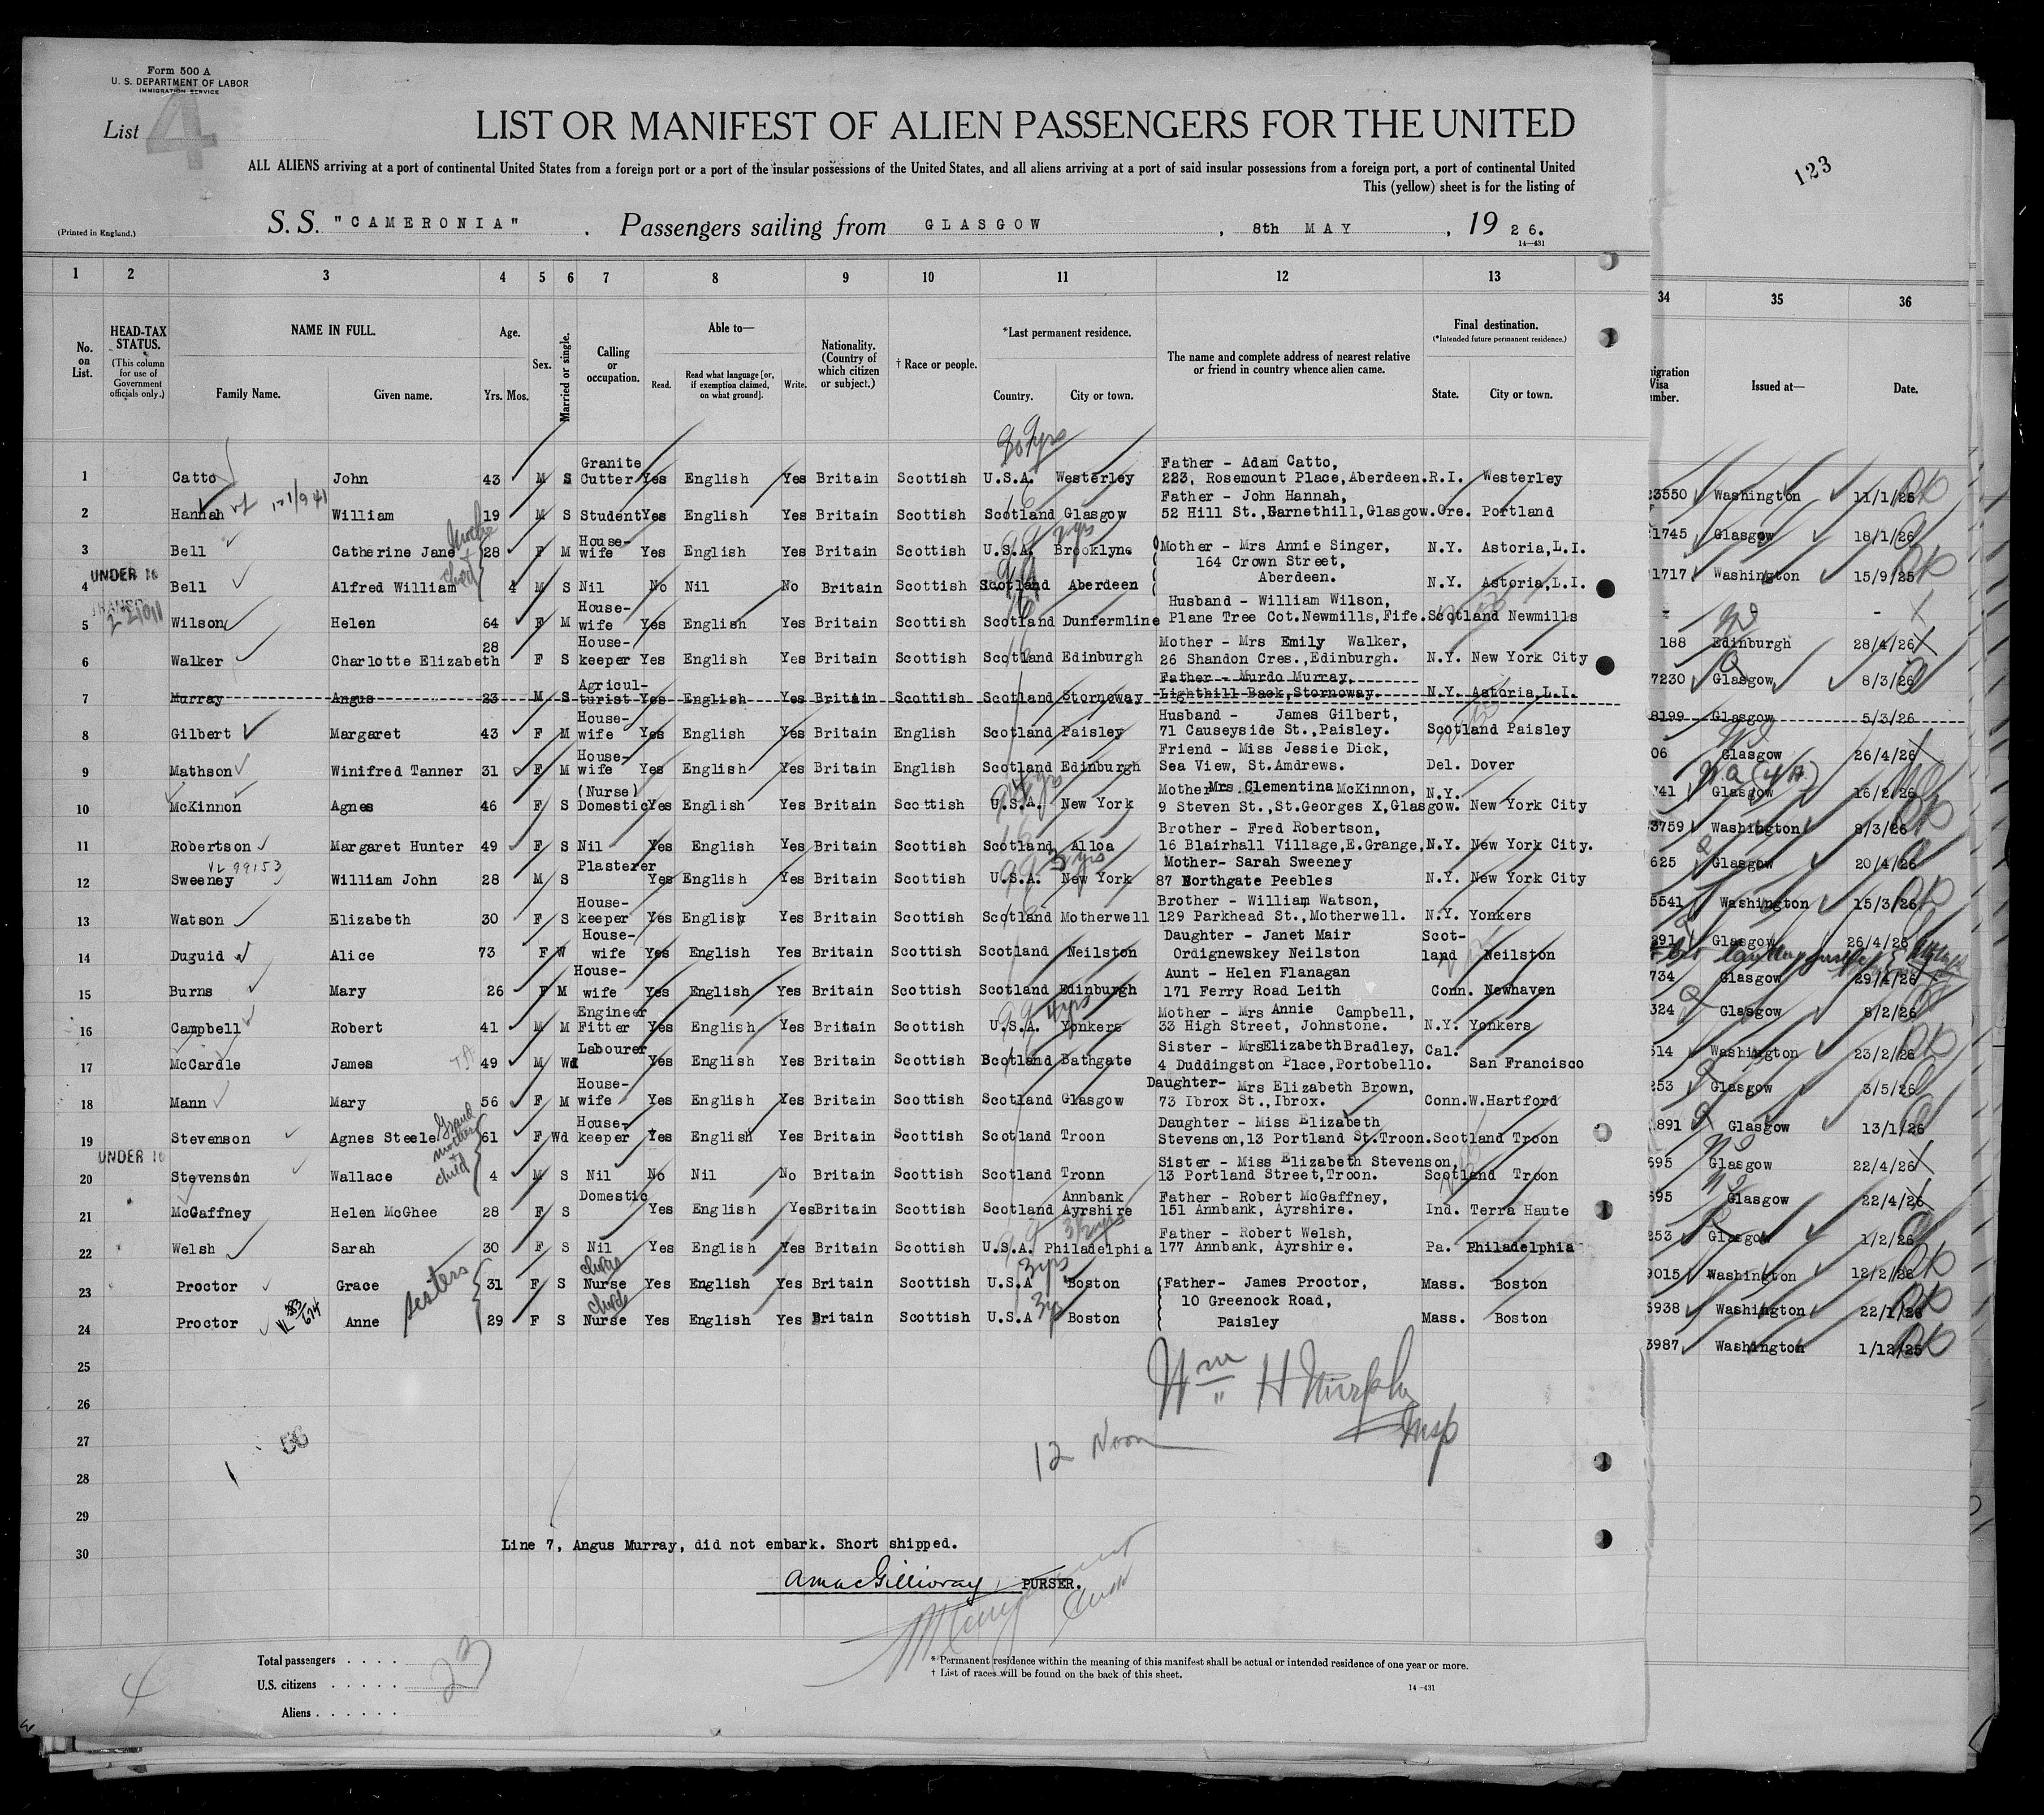 Form 500 A
U. S. DEPARTMENT OF LABOR
IMMIGRATION SERVICE
List 4
LIST OR MANIFEST OF ALIEN PASSENGERS FOR THE UNITED
ALL ALIENS arriving at a port of continental United States from a foreign port or a port of the insular possessions of the United States, and all aliens arriving at a port of said insular possessions from a foreign port, a port of continental United
This (yellow) sheet is for the listing of
123
(Printed in England.)
S. S. "CAMERONIA" . Passengers sailing from GLASGOW , 8th MAY , 19 26.
14—431
1 2 3 4 5 6 7 8 9 10 11 12 13
34 35 36
No. on List.
HEAD-TAX STATUS.
(This column for use of Government officials only.)
NAME IN FULL.
Family Name. Given name.
Age.
Yrs. Mos.
Sex.
Married or single.
Calling or occupation.
Able to—
Read. Read what language [or, if exemption claimed, on what ground]. Write.
Nationality. (Country of which citizen or subject.)
† Race or people.
*Last permanent residence.
Country. City or town.
The name and complete address of nearest relative or friend in country whence alien came.
Final destination.
(*Intended future permanent residence.)
State. City or town.
Issued at— Date.
1 Catto John 43 M S Granite Cutter Yes English Yes Britain Scottish U.S.A. Westerley Father - Adam Catto, 223, Rosemount Place, Aberdeen. R.I. Westerley
2 Hannah William 19 M S Student Yes English Yes Britain Scottish Scotland Glasgow Father - John Hannah, 52 Hill St., Garnethill, Glasgow. Ore. Portland
3 Bell Catherine Jane 28 F M House-wife Yes English Yes Britain Scottish U.S.A. 2yrs Brooklyne Mother - Mrs Annie Singer, 164 Crown Street, Aberdeen. N.Y. Astoria,L.I.
UNDER 16
4 Bell Alfred William 4 M S Nil No Nil No Britain Scottish Scotland Aberdeen N.Y. Astoria,L.I.
5 Wilson Helen 64 F M House-wife Yes English Yes Britain Scottish Scotland Dunfermline Husband - William Wilson, Plane Tree Cot. Newmills, Fife. Scotland Newmills
6 Walker Charlotte Elizabeth 28 F S House-keeper Yes English Yes Britain Scottish Scotland Edinburgh Mother - Mrs Emily Walker, 26 Shandon Cres., Edinburgh. N.Y. New York City
7 Murray Angus 23 M S Agricul-turist Yes English Yes Britain Scottish Scotland Stornoway Father - Murdo Murray, Lighthill Back, Stornoway. N.Y. Astoria,L.I.
8 Gilbert Margaret 43 F M House-wife Yes English Yes Britain English Scotland Paisley Husband - James Gilbert, 71 Causeyside St., Paisley. Scotland Paisley
9 Mathson Winifred Tanner 31 F M House-wife Yes English Yes Britain English Scotland Edinburgh Friend - Miss Jessie Dick, Sea View, St.Amdrews. Del. Dover
10 McKinnon Agnes 46 F S (Nurse) Domestic Yes English Yes Britain Scottish U.S.A. New York Mother Mrs. Clementina McKinnon, 9 Steven St., St.Georges X, Glasgow. N.Y. New York City
11 Robertson Margaret Hunter 49 F S Nil Yes English Yes Britain Scottish Scotland Alloa Brother - Fred Robertson, 16 Blairhall Village, E.Grange, N.Y. New York City.
VL 99153
12 Sweeney William John 28 M S Plasterer Yes English Yes Britain Scottish U.S.A. New York Mother- Sarah Sweeney 87 Northgate Peebles N.Y. New York City
13 Watson Elizabeth 30 F S House-keeper Yes English Yes Britain Scottish Scotland Motherwell Brother - William Watson, 129 Parkhead St., Motherwell. N.Y. Yonkers
14 Duguid Alice 73 F W House-wife Yes English Yes Britain Scottish Scotland Neilston Daughter - Janet Mair Ordignewskey Neilston Scot-land Neilston
15 Burns Mary 26 F M House-wife Yes English Yes Britain Scottish Scotland Edinburgh Aunt - Helen Flanagan 171 Ferry Road Leith Conn. Newhaven
16 Campbell Robert 41 M M Engineer Fitter Yes English Yes Britain Scottish U.S.A. 4yrs Yonkers Mother - Mrs Annie Campbell, 33 High Street, Johnstone. N.Y. Yonkers
17 McCardle James 49 M Wd Labourer Yes English Yes Britain Scottish Scotland Bathgate Sister - Mrs Elizabeth Bradley, 4 Duddingston Place, Portobello. Cal. San Francisco
18 Mann Mary 56 F M House-wife Yes English Yes Britain Scottish Scotland Glasgow Daughter- Mrs Elizabeth Brown, 73 Ibrox St., Ibrox. Conn. W.Hartford
19 Stevenson Agnes Steele Grand mother + child 61 F Wd House-keeper Yes English Yes Britain Scottish Scotland Troon Daughter - Miss Elizabeth Stevenson, 13 Portland St. Troon. Scotland Troon
UNDER 16
20 Stevenson Wallace 4 M S Nil No Nil No Britain Scottish Scotland Tronn Sister - Miss Elizabeth Stevenson, 13 Portland Street, Troon. Scotland Troon
21 McGaffney Helen McGhee 28 F S Domestic Yes English Yes Britain Scottish Scotland Annbank Ayrshire Father - Robert McGaffney, 151 Annbank, Ayrshire. Ind. Terra Haute
22 Welsh Sarah 30 F S Nil Yes English Yes Britain Scottish U.S.A. Philadelphia Father - Robert Welsh, 177 Annbank, Ayrshire. Pa. Philadelphia
23 Proctor Grace sisters 31 F S Nurse Yes English Yes Britain Scottish U.S.A 3yrs Boston Father- James Proctor, 10 Greenock Road, Paisley Mass. Boston
24 Proctor Anne 29 F S Nurse Yes English Yes Britain Scottish U.S.A 3yrs Boston Mass. Boston
25
26
27
28
29
30
23550 Washington 11/1/26
1745 Glasgow 18/1/26
1717 Washington 15/9/25
- -
188 Edinburgh 28/4/26
7230 Glasgow 8/3/26
8199 Glasgow 5/3/26
06 Glasgow 26/4/26
741 Glasgow 16/2/26
3759 Washington 8/3/26
625 Glasgow 20/4/26
5541 Washington 15/3/26
291 Glasgow 26/4/26
734 Glasgow 29/4/26
324 Glasgow 8/2/26
514 Washington 23/2/26
253 Glasgow 3/5/26
891 Glasgow 13/1/26
695 Glasgow 22/4/26
695 Glasgow 22/4/26
253 Glasgow 1/2/26
9015 Washington 12/2/26
6938 Washington 22/1/26
3987 Washington 1/12/25
Wm H Murphy
Insp
12 Noon
Line 7, Angus Murray, did not embark. Short shipped.
A MacGillivray, PURSER.
Total passengers . . . .
U.S. citizens . . . . .
Aliens . . . . . .
23
4
* Permanent residence within the meaning of this manifest shall be actual or intended residence of one year or more.
† List of races will be found on the back of this sheet.
14-431